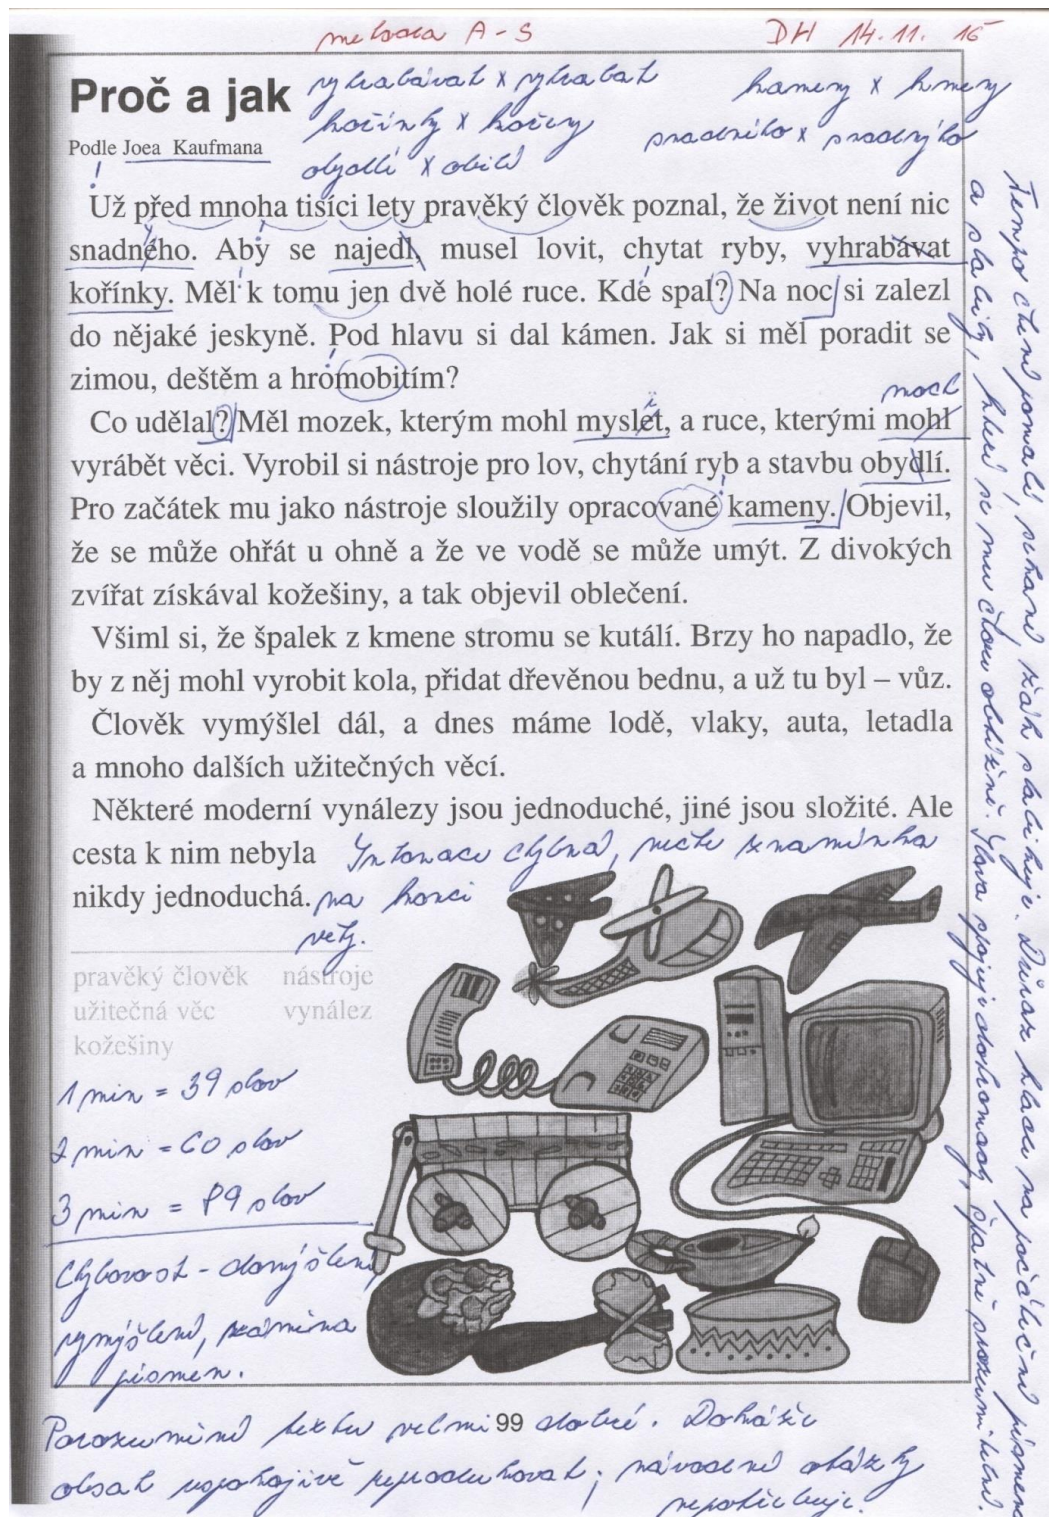 metoda A-S DH 14. 11. 15
Proč a jak
vyhrabávat x vyhrabat
kořínky x kořeny
obydlí x obilí
kameny x kmeny
snadného x snadnýho
Podle Joea Kaufmana
!
Už před mnoha tisíci lety pravěký člověk poznal, že život není nic
snadného. Aby se najedl, musel lovit, chytat ryby, vyhrabávat
kořínky. Měl k tomu jen dvě holé ruce. Kde spal? Na noc si zalezl
do nějaké jeskyně. Pod hlavu si dal kámen. Jak si měl poradit se
zimou, deštěm a hromobitím?
moch
Co udělal? Měl mozek, kterým mohl myslet, a ruce, kterými mohl
vyrábět věci. Vyrobil si nástroje pro lov, chytání ryb a stavbu obydlí.
Pro začátek mu jako nástroje sloužily opracované kameny. Objevil,
že se může ohřát u ohně a že ve vodě se může umýt. Z divokých
zvířat získával kožešiny, a tak objevil oblečení.
Všiml si, že špalek z kmene stromu se kutálí. Brzy ho napadlo, že
by z něj mohl vyrobit kola, přidat dřevěnou bednu, a už tu byl – vůz.
Člověk vymýšlel dál, a dnes máme lodě, vlaky, auta, letadla
a mnoho dalších užitečných věcí.
Některé moderní vynálezy jsou jednoduché, jiné jsou složité. Ale
cesta k nim nebyla
nikdy jednoduchá.
Intonace chybná, nečte znamínka
na konci
věty.
pravěký člověk nástroje
užitečná věc vynález
kožešiny
1 min = 39 slov
2 min = 60 slov
3 min = 89 slov
Chybovost - domýšlení,
vymýšlení, záměna
písmen.
99
Porozumění textu velmi dobré. Dokáže
obsah uspokojivě reprodukovat; návodné otázky
nepotřebuje.
Tempo čtení pomalé, žák slabikuje. Důraz kladen na počáteční písmena
a slabiky, které se mu čtou obtížně. Slova spojuje dohromady, špatně srozumitelné.